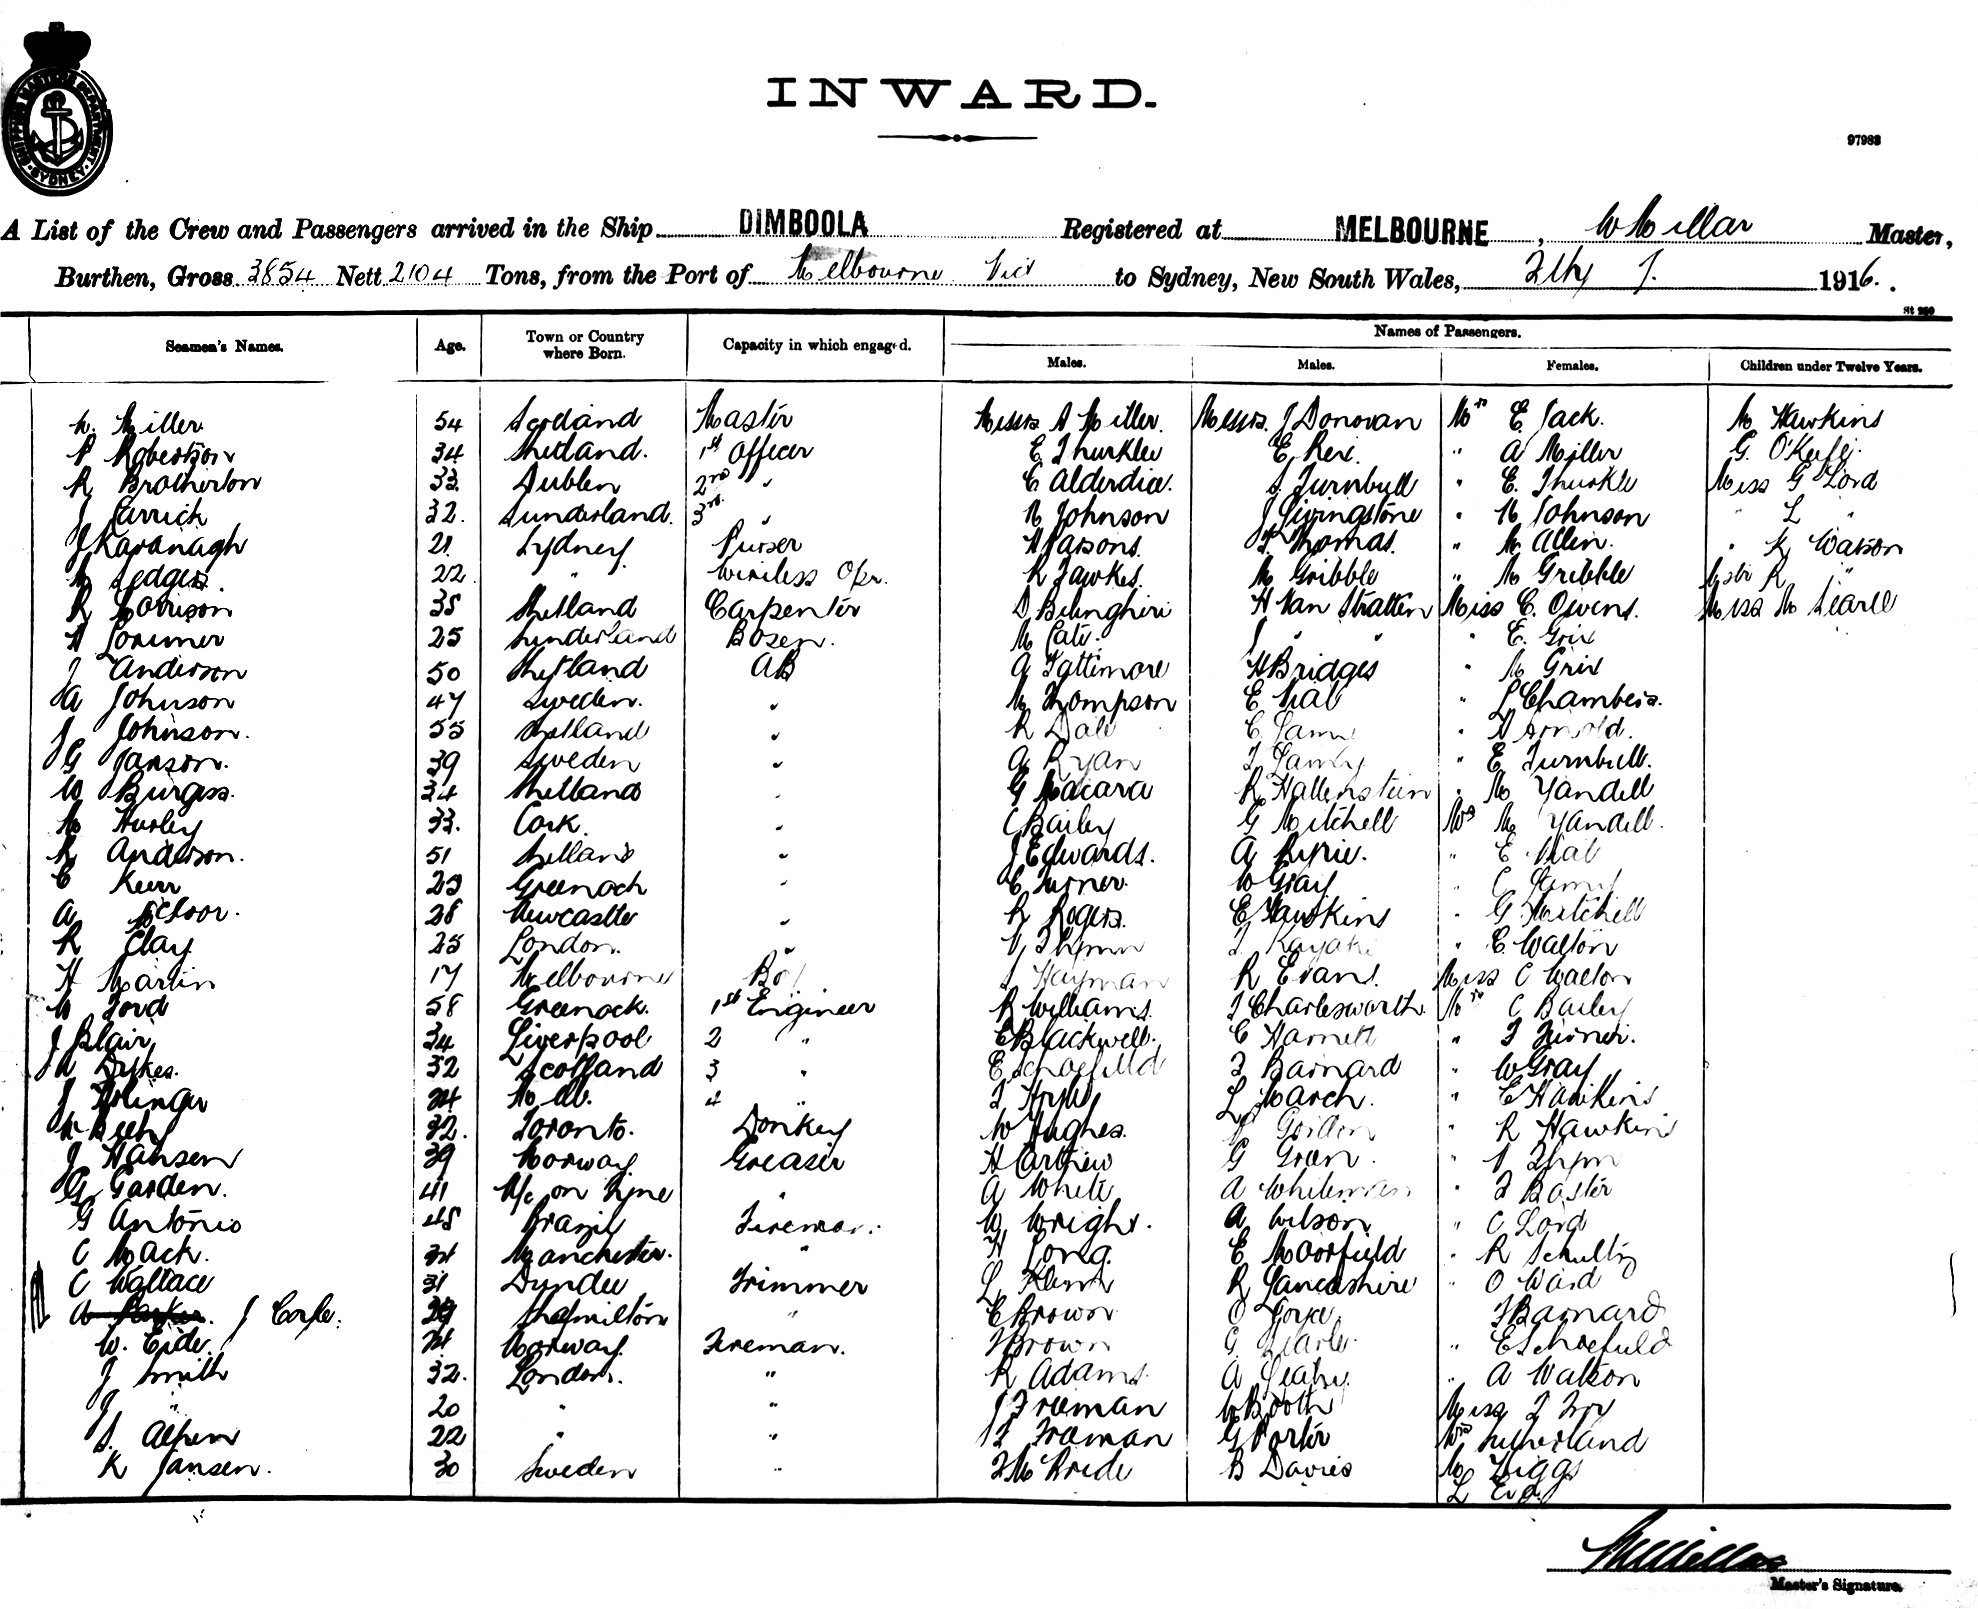 SHIPPING MASTER'S DEPARTMENT SYDNEY
INWARD.
97983
A List of the Crew and Passengers arrived in the Ship DIMBOOLA Registered at MELBOURNE, W Millar Master,
Burthen, Gross 3854 Nett 2104 Tons, from the Port of Melbourne Vict to Sydney, New South Wales, 1916.
St 290
Names of Passengers.
Seamen's Names. Age. Town or Country where Born. Capacity in which engaged. Males. Males. Females. Children under Twelve Years.
Miller 54 Scotland Master Messrs A Miller. Messrs. J Donovan Mrs E. Jack. M Hawkins
P Robertson 34 Shetland. 1st Officer E Thurkle E Rex. " A Miller G. O'Keefe
R Brotherton 33 Dublin 2nd " C Alderdice. S. Turnbull " E. Thurkle Miss G Lord
J Carrick 32. Sunderland. 3rd " N Johnson J Livingstone " N Johnson " L "
J Kavanagh 21 Sydney Purser H Parsons. Thomas. " M Allen. " K Watson
M Ledger 22 " Wireless Opr. R Fawkes. M Gribble " M Gribble R "
R Morrison 38 Shetland Carpenter D Belinghiri H Van Stratten Miss C. Owens. Miss M Searll
A Lorimer 25 Sunderland Bosen. M Cate. J " " " E. Grix
J Anderson 50 Shetland AB A Tattimore H Bridges " M Grix
A Johnson 47 Sweden. " M Thompson E Vial " L Chambers.
J Johnson. 55 Shetland " R Dale C. " A Arnold.
G Janson. 39 Sweden " A Ryan " E Turnbull.
W Burgess. 34 Shetland " G Macara R Hallenstein " M Yandell
M Hurley 33. Cork. " C Bailey G Mitchell Mrs M Yandell.
R Anderson. 51 Shetland " J Edwards. A " E Vial
C Kerr 23 Greenock " C Turner. W Gray " C
A 28 Newcastle " R Rogers. E Hawkins " G. Mitchell
R Clay 25 London. " V Thynn " E. Walton
H Martin 17 Melbourne Boy Hayman R Evans. Miss C Walton
W Ford 58 Greenock. 1st Engineer R Williams. J Charlesworth Mrs C Bailey
J Blair 34 Liverpool 2 " C Blackwell. C Harnett " J Turner.
A Dykes. 32 Scotland 3 " E Schoefield J Barnard " W Gray
J 24 4 " L March. " E Hawkins
32. Toronto. Donkey W Hughes. Gordon " R Hawkins
J Hansen 39 Norway Greaser H Carthew G " V Thynn
G Garden. 41 N/c on Tyne " A White A Whiteman " J Baster
G Antonio 48 Brazil Fireman. W Wright. A Wilson " C Lord
C Mack. 34 Manchester. " H Long. E Moorfield " R Schultz
C Wallace 31 Dundee Trimmer R Lancashire " O Ward
J Corfe. Hamilton " C Brown O J Barnard
W. Eide. Norway Fireman. J Brown G. Searle " E Schoefield
J Smith 32. London. " R Adams. A Leahy. " A Watson
J " 20 " " J Freeman W Booth Miss
S. Alpen 22 " " J Freeman G Porter Mrs Sutherland
K Jansen. 30 Sweden " McBride B Davies M Higgs
L
Master's Signature.